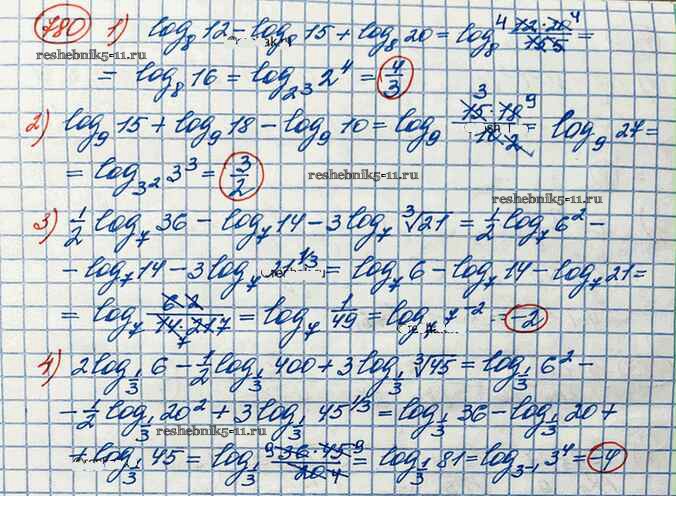 780 1) log₈ 12 - log₈ 15 + log₈ 20 = log₈ (12·20)/15 =
= log₈ 16 = log_{2^3} 2⁴ = 4/3
2) log₉ 15 + log₉ 18 - log₉ 10 = log₉ (15·18)/10 = log₉ 27 =
= log_{3^2} 3³ = 3/2
reshebnik5-11.ru
reshebnik5-11.ru
3) 1/2 log₇ 36 - log₇ 14 - 3 log₇ ∛21 = 1/2 log₇ 6² -
- log₇ 14 - 3 log₇ 21^{1/3} = log₇ 6 - log₇ 14 - log₇ 21 =
= log₇ 6/(14·21) = log₇ 1/49 = log₇ 7⁻² = -2
4) 2 log_{1/3} 6 - 1/2 log_{1/3} 400 + 3 log_{1/3} ∛45 = log_{1/3} 6² -
- 1/2 log_{1/3} 20² + 3 log_{1/3} 45^{1/3} = log_{1/3} 36 - log_{1/3} 20 +
reshebnik5-11.ru
+ log_{1/3} 45 = log_{1/3} (36·45)/20 = log_{1/3} 81 = log_{3^{-1}} 3⁴ = -4